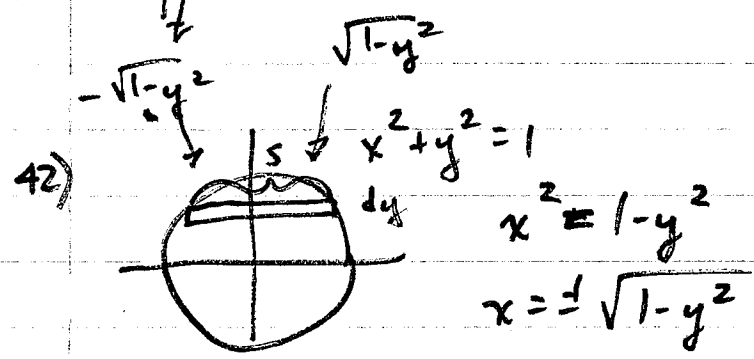 √(1-y²)
-√(1-y²)
42)
s
x² + y² = 1
dy
x² = 1-y²
x = ± √(1-y²)